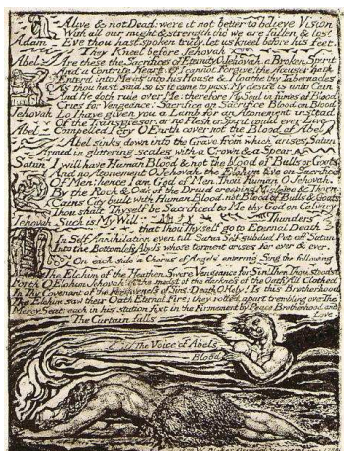 Alive & not Dead: were it not better to believe Vision
With all our might & strength tho we are fallen & lost
Adam Eve thou hast spoken truly, let us kneel before his feet.
They Kneel before Jehovah
Abel Are these the Sacrifices of Eternity O Jehovah, a Broken Spirit
And a Contrite Heart. O I cannot Forgive! the Accuser hath
Enterd into Me as into his House & I loathe thy Tabernacles
As thou hast said, so is it come to pass: My desire is unto Cain
And He doth rule over Me: therefore My Soul in fumes of Blood
Cries for Vengeance: Sacrifice on Sacrifice Blood on Blood
Jehovah Lo I have given you a Lamb for an Atonement instead
Of the Transgressor, or no Flesh or Spirit could ever Live
Abel Compelled I cry O Earth cover not the Blood of Abel
Abel sinks down into the Grave from which arises Satan
Armed in glittering scales with a Crown & a Spear
Satan I will have Human Blood & not the blood of Bulls or Goats
And no Atonement O Jehovah the Elohim live on Sacrifice
Of Men: hence I am God of Men: Thou Human O Jehovah.
By the Rock & Oak of the Druid creeping Mistletoe & Thorn
Cains City built with Human Blood, not Blood of Bulls & Goats
Thou shalt Thyself be Sacrificed to Me thy God on Calvary
Jehovah Such is My Will Thunders
that Thou Thyself go to Eternal Death
In Self Annihilation even till Satan Self-subdud Put off Satan
Into the Bottomless Abyss whose torment arises for ever & ever.
On each side a Chorus of Angels entering Sing the following
The Elohim of the Heathen Swore Vengeance for Sin! Then Thou stoodst
Forth O Elohim Jehovah! in the midst of the darkness of the Oath! All Clothed
In Thy Covenant of the Forgiveness of Sins: Death O Holy! Is this Brotherhood
The Elohim saw their Oath Eternal Fire; they rolled apart trembling over The
Mercy Seat: each in his station fixt in the Firmament by Peace Brotherhood and Love.
The Curtain falls
The Voice of Abels
Blood